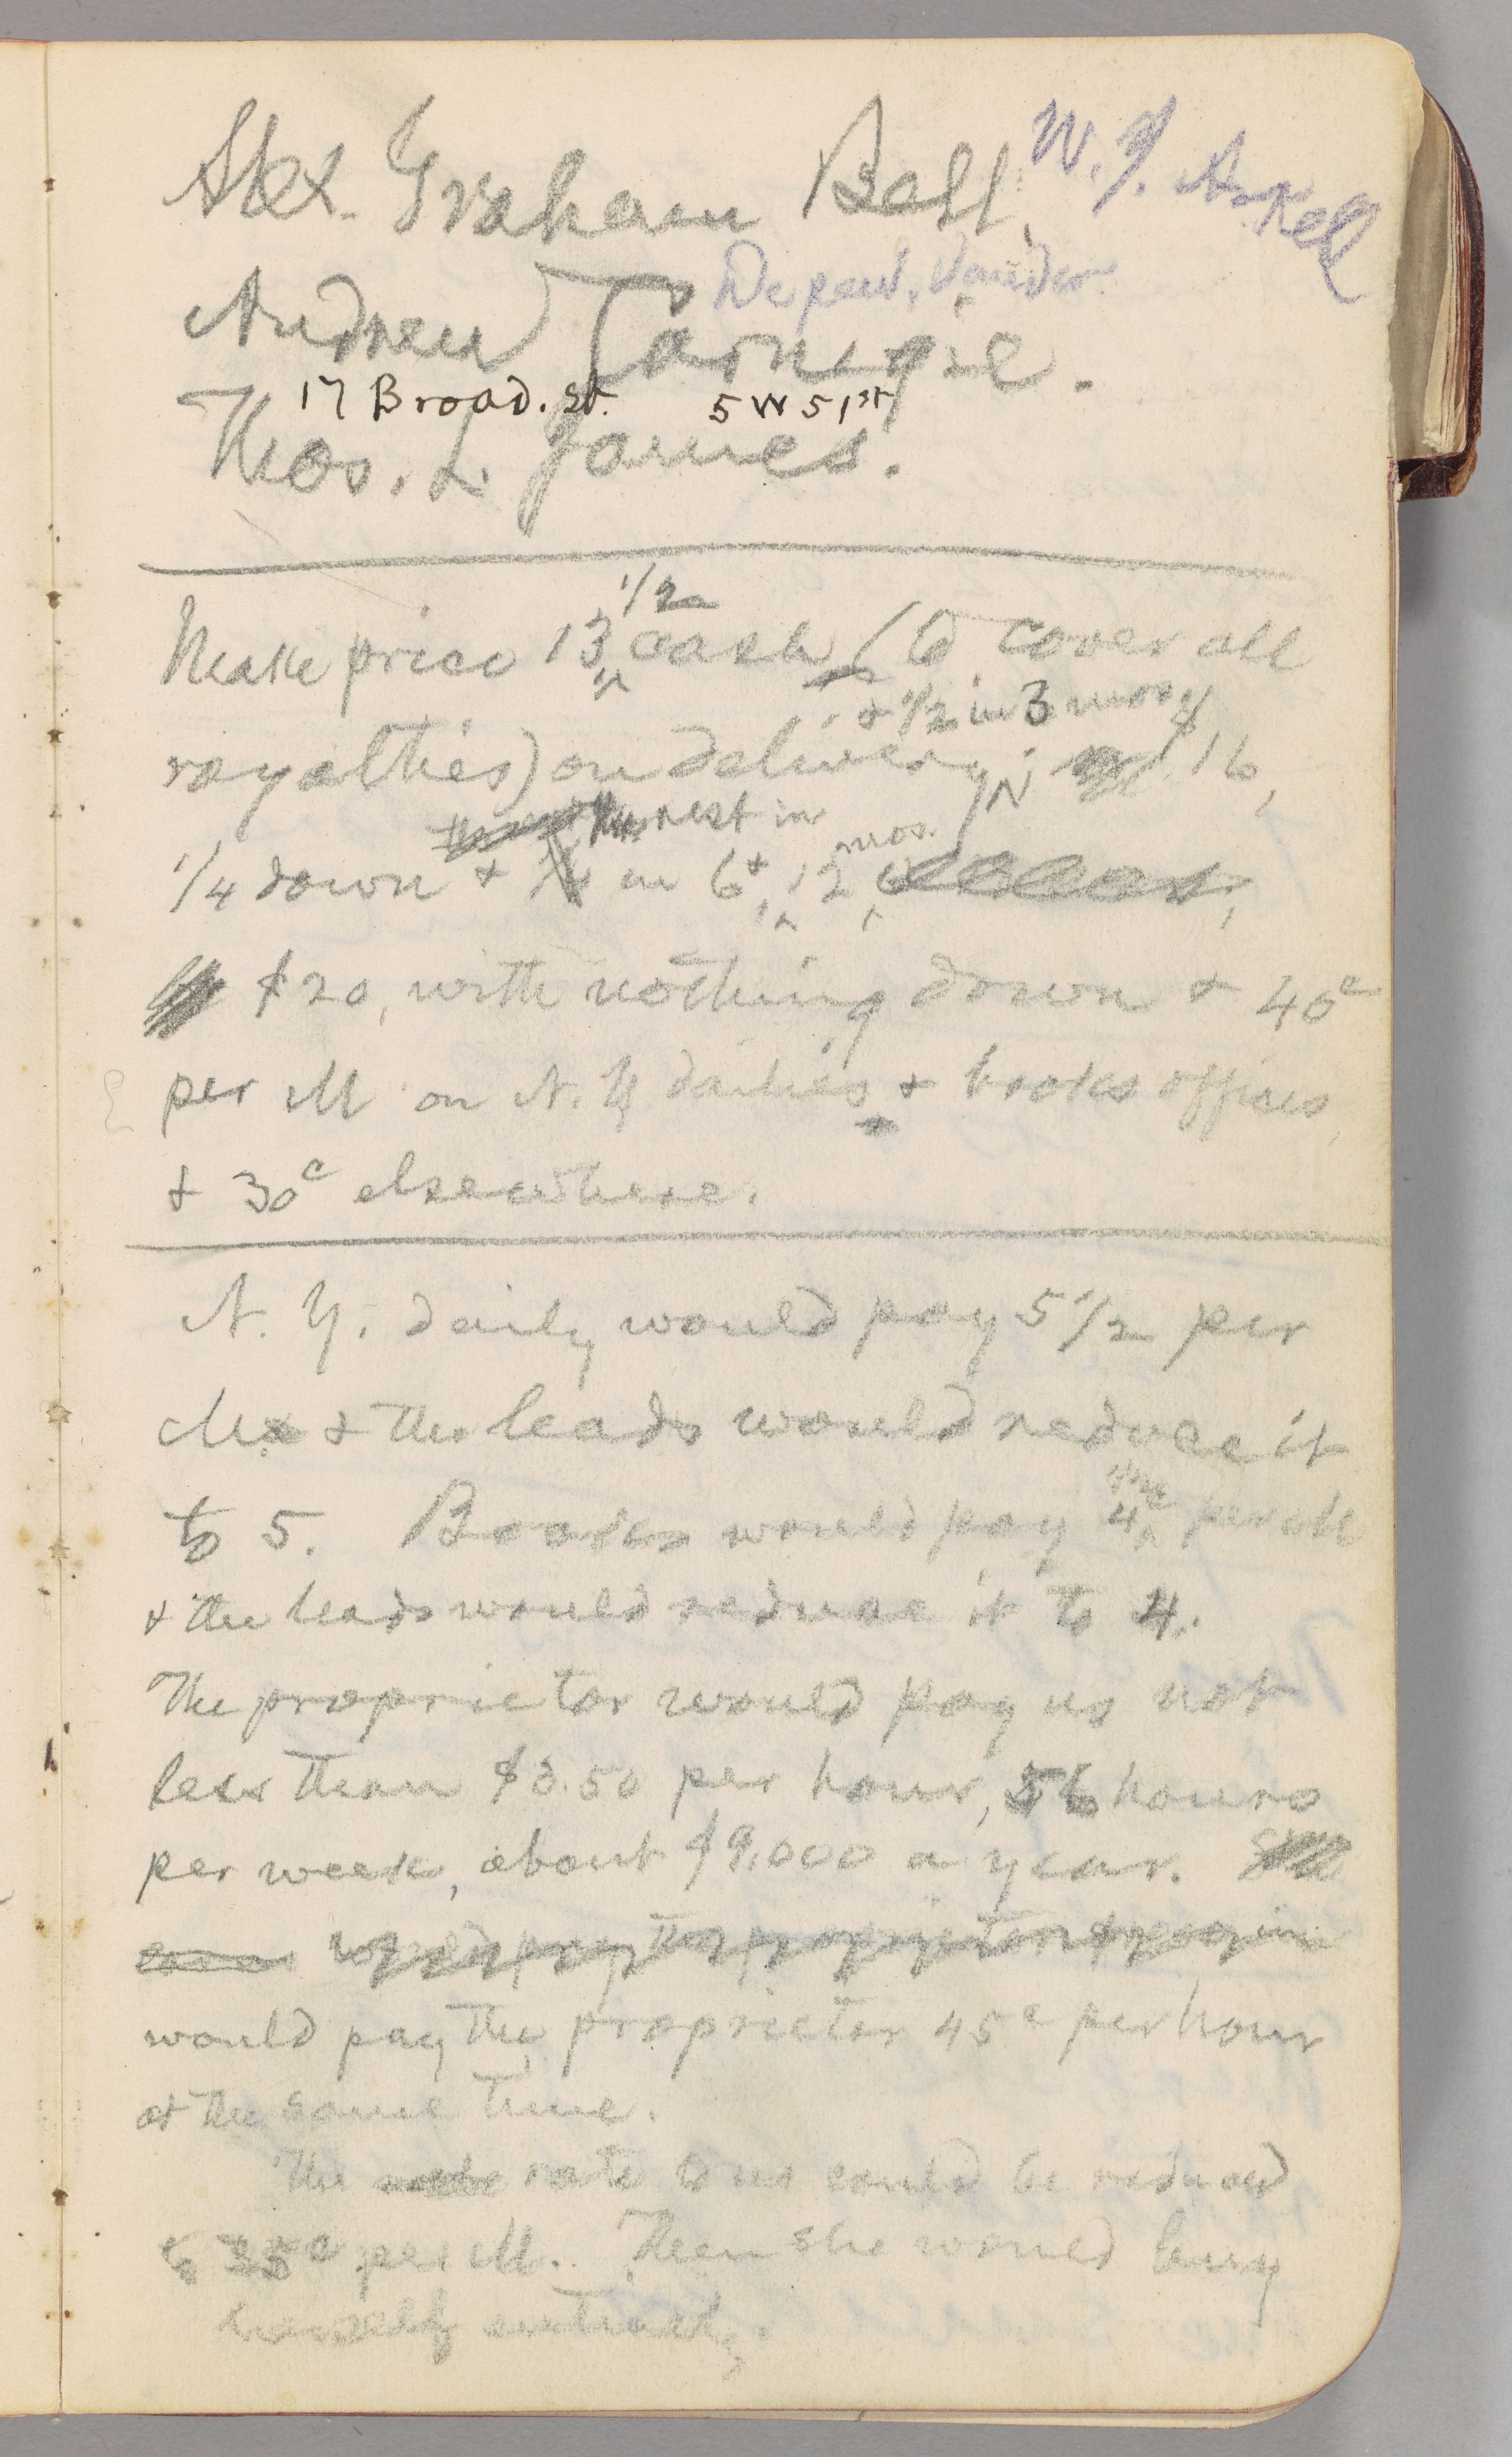 Alex. Graham Bell. W. J. Arkell
Depew, Vander
Andrew Carnegie.
17 Broad. St. 5 W 51st
Thos. L. James.
1/2
Make price 13 cash (to cover all
& 1/2 in 3 mos
royalties) on delivery; 16,
the rest in
mos.
1/4 down & in 6 & 12
$20, with nothing down & 40c
per M on N. Y dailies & books offices,
& 30c elsewhere.
N. Y. daily would pay 5 1/2 per
M & the leads would reduce it
to 5. Books would pay 4 1/2 per M
& the leads would reduce it to 4.
The proprietor would pay us not
less than $3.50 per hour, 56 hours
per week, about $9,000 a year. She
would pay the proprietor 45c per hour
at the same time.
The rate to us could be reduced
to 35c per M. Then she would buy
herself entirely.